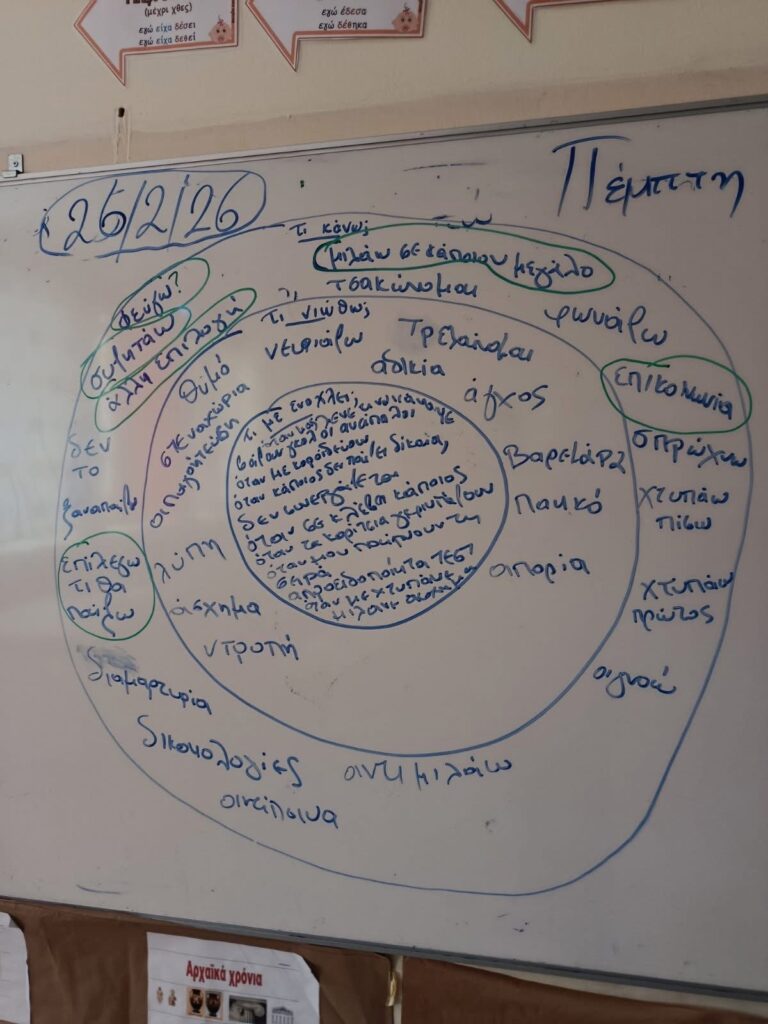 (μέχρι χθες)
εγώ είχα δέσει
εγώ είχα δεθεί
εγώ έδεσα
εγώ δέθηκα
26/2/26
Πέμπτη
τι κάνω;
μιλάω σε κάποιον μεγάλο
τσακώνομαι
φωνάζω
φεύγω?
συζητάω
άλλη επιλογή
επικοινωνία
σπρώχνω
χτυπάω
πίσω
χτυπάω
πρώτος
αγνοώ
αντιμιλάω
αντίποινα
δικαιολογίες
διαμαρτυρία
επιλέγω
τι θα
παίξω
δεν
το
ξαναπαίζω
τι νιώθω;
νευριάζω
τρελαίνομαι
αδικία
άγχος
βαριεμάρα
πανικό
απορία
ντροπή
άσχημα
λύπη
απογοήτευση
στεναχώρια
θυμό
τι με ενοχλεί;
όταν με κοροϊδεύουν
όταν κάποιος δεν παίζει δίκαια,
δεν συνεργάζεται
όταν σε κλέβει κάποιος
όταν τα κορίτσια
όταν μου παίρνουν τη
σειρά
απροειδοποίητα ΤΕΣΤ
όταν με χτυπάνε
μιλάνε άσχημα
Αρχαϊκά χρόνια